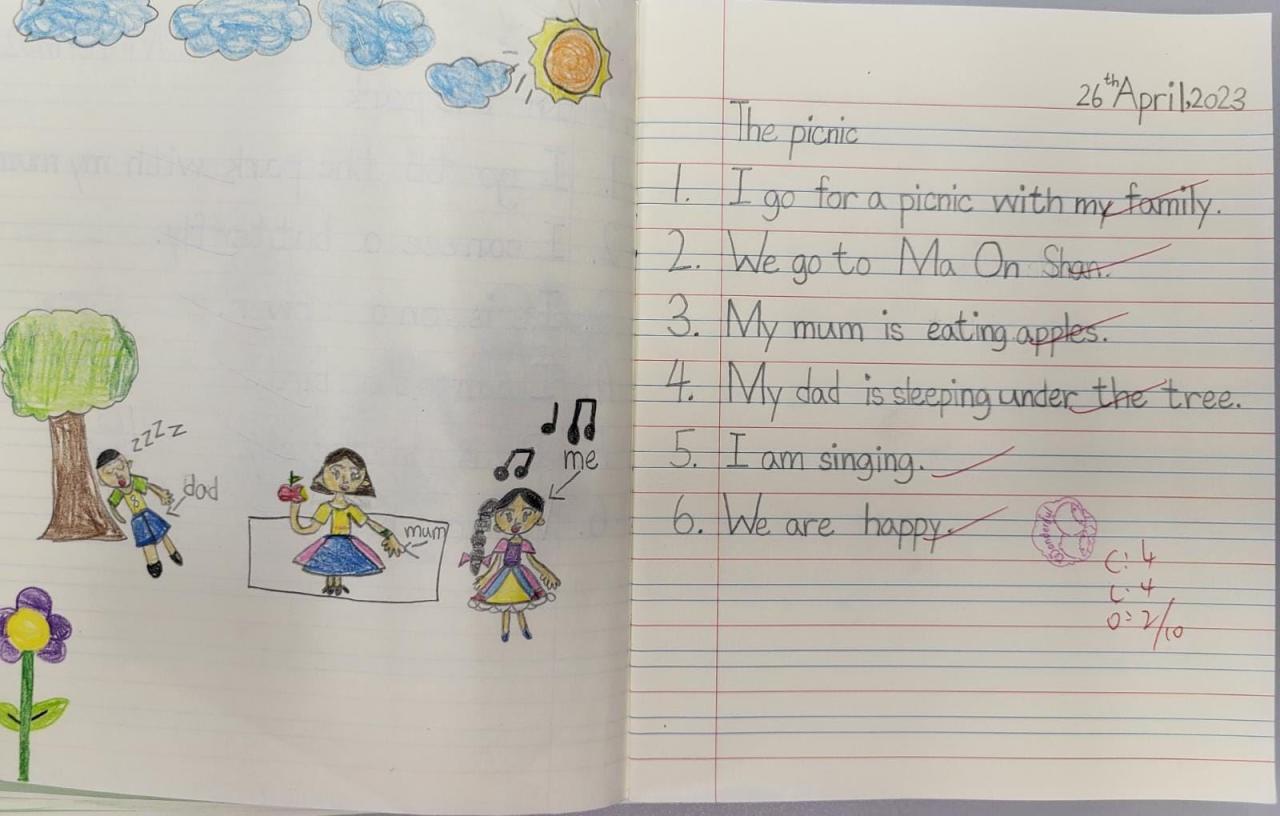 26th April, 2023
The picnic
1. I go for a picnic with my family.
2. We go to Ma On Shan.
3. My mum is eating apples.
4. My dad is sleeping under the tree.
5. I am singing.
6. We are happy.
C: 4
L: 4
O: 2/10
zzzz
dad
mum
me